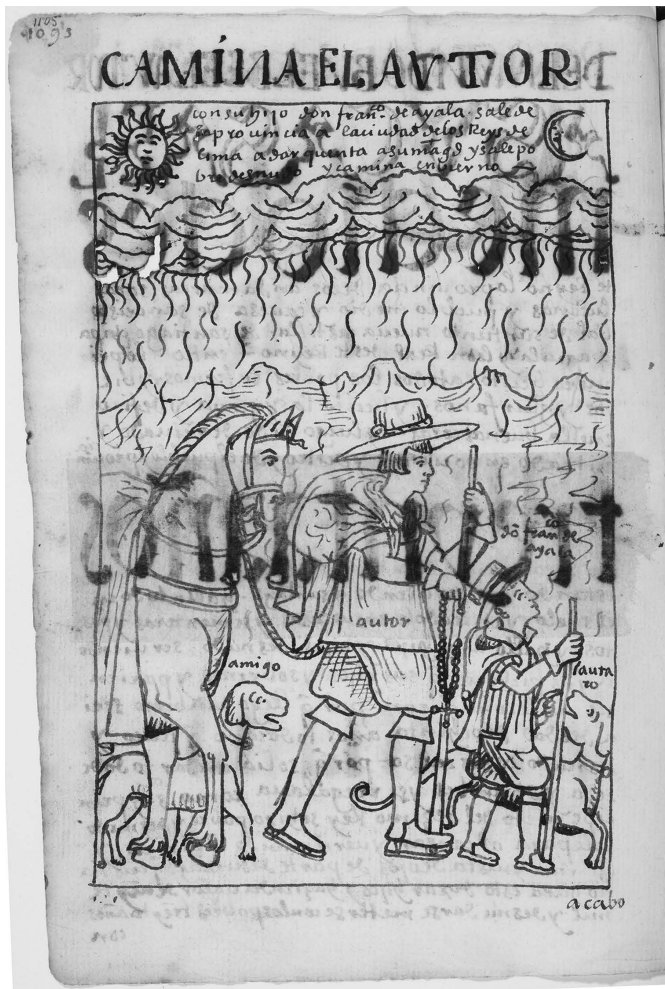 1105
1095
CAMINA EL AVTOR
con su hijo don franco. de ayala. sale de
la prouincia a la ciudad de los Reys de
lima a dar quenta a su magd y sale po
bre desnudo y camina enbierno
don franco de
ayala
autor
amigo
lauta
ro
acabo